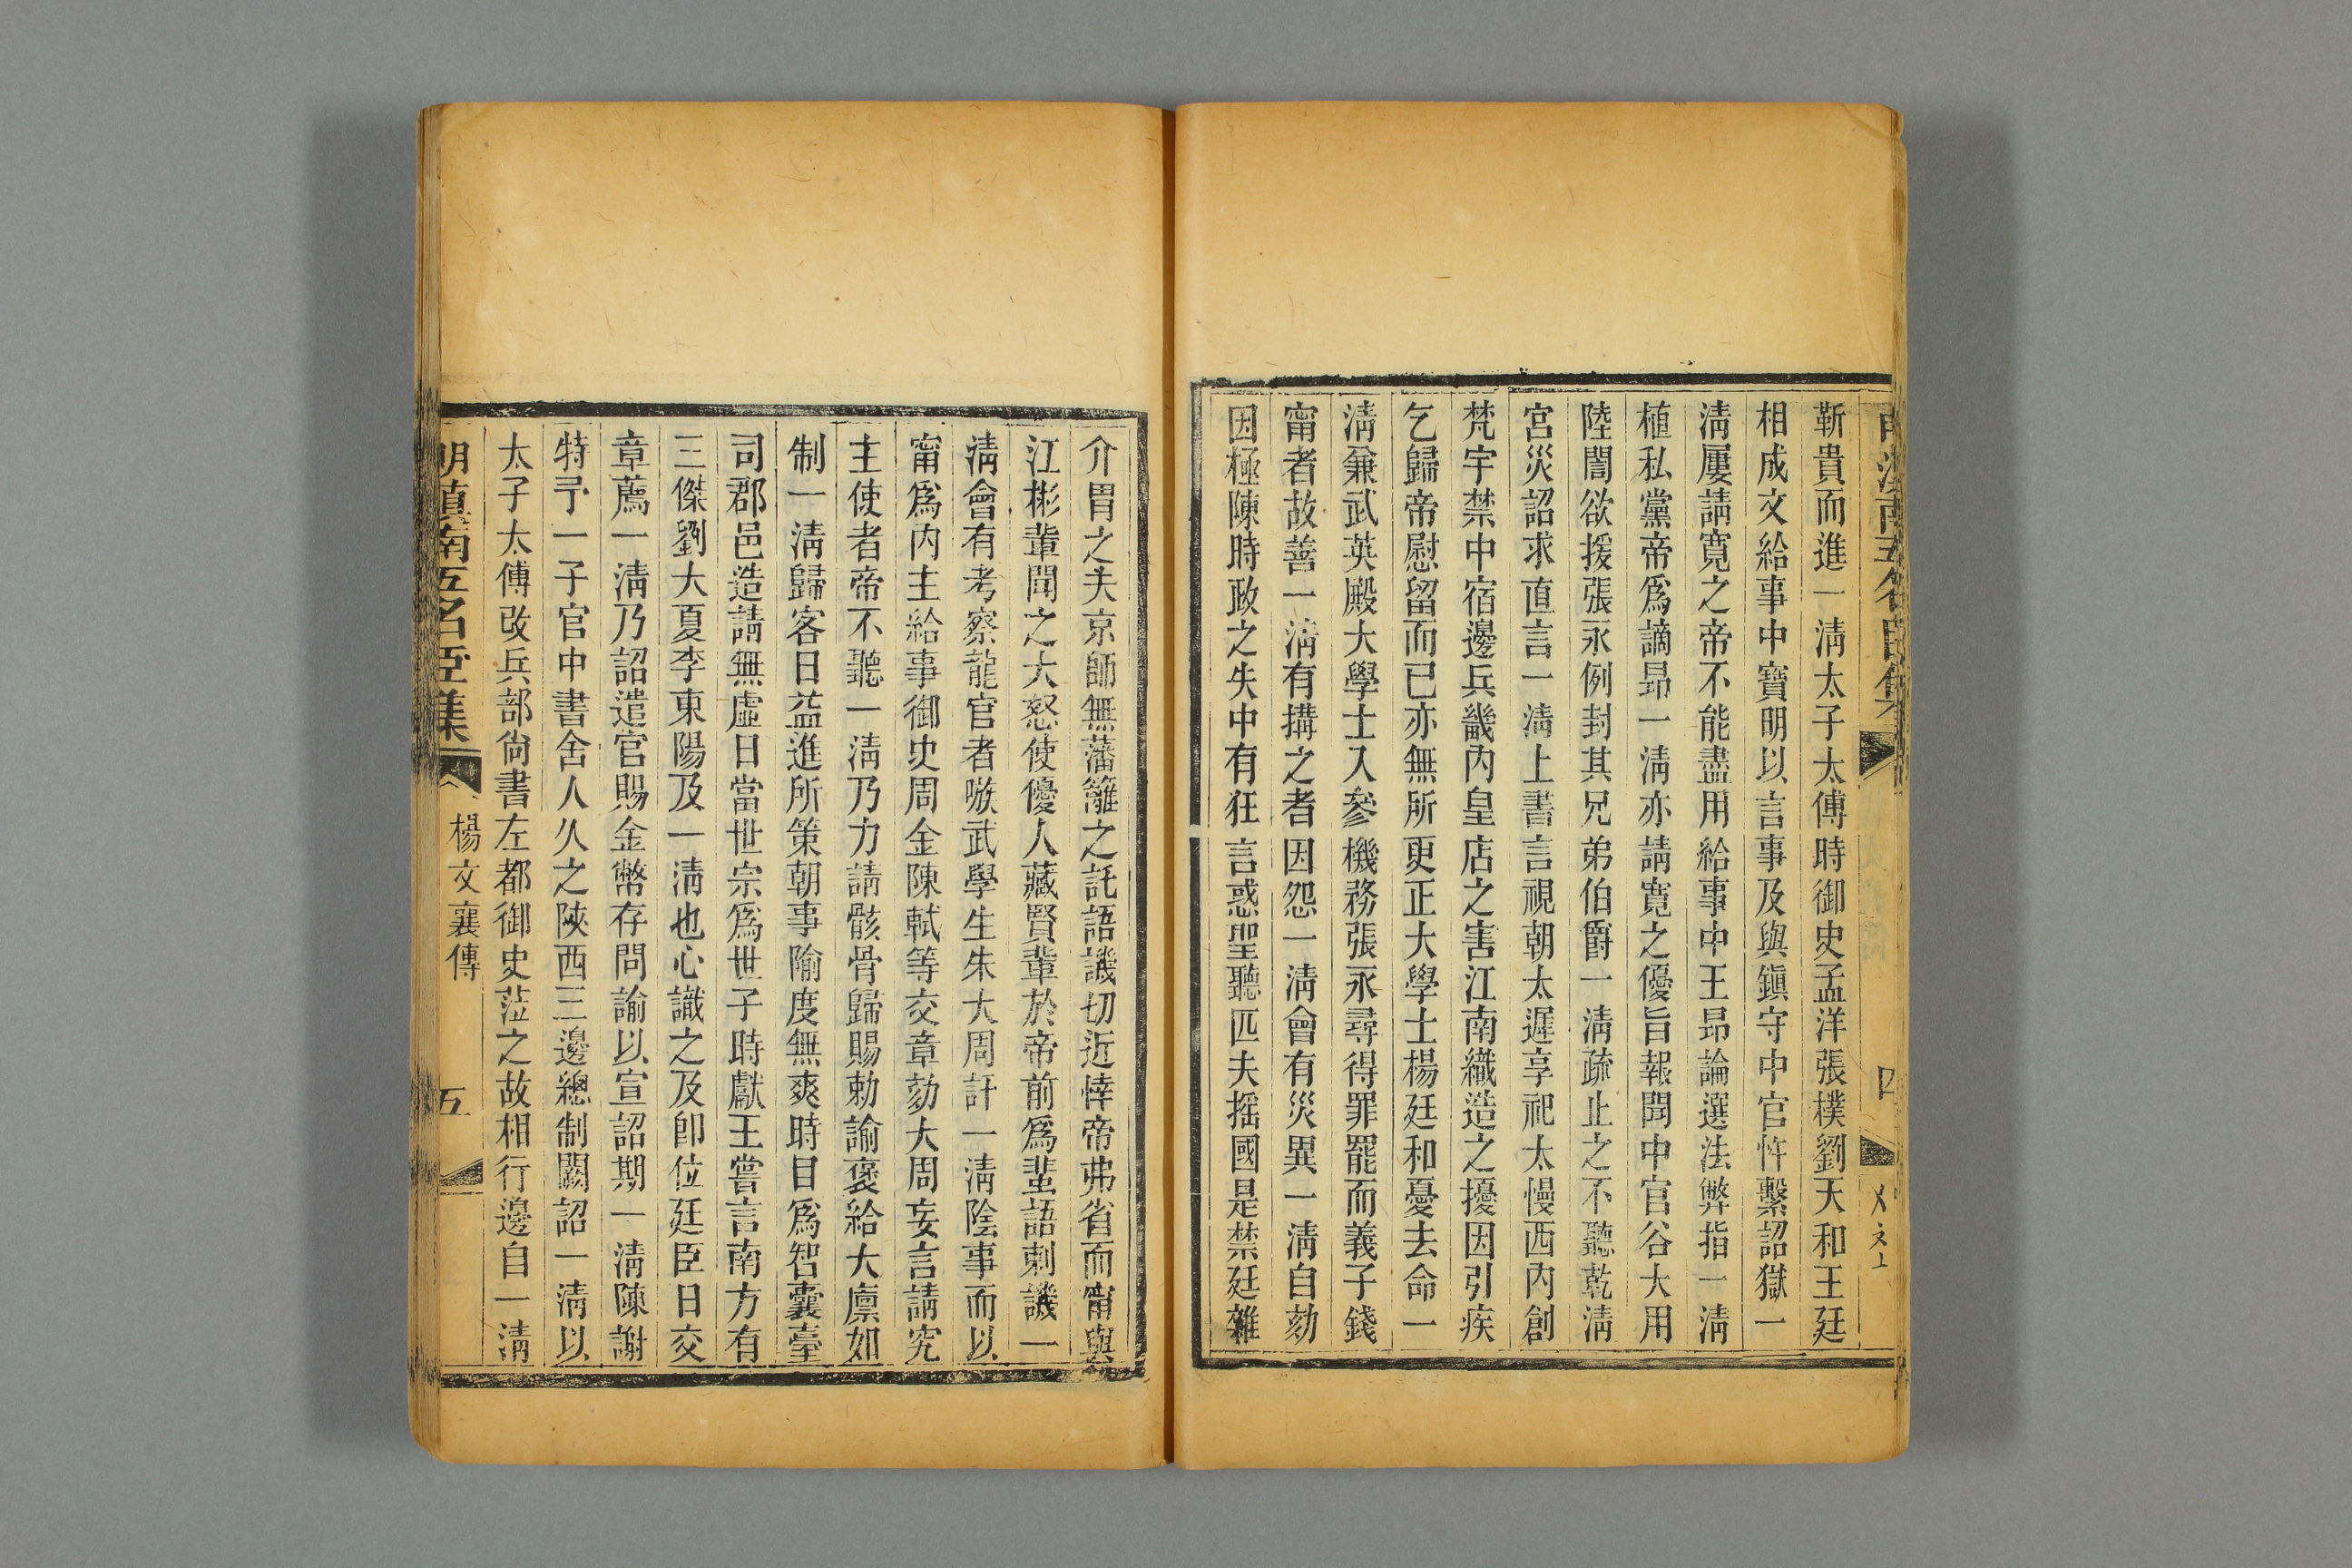 靳貴而進一淸太子太傅時御史孟洋張樸劉天和王廷
相成文給事中寶明以言事及與鎭守中官忤繫詔獄一
淸屢請寬之帝不能盡用給事中王昂論選法弊指一淸
植私黨帝爲謫昂一淸亦請寬之優旨報聞中官谷大用
陸誾欲援張永例封其兄弟伯爵一淸疏止之不聽乾淸
宮災詔求直言一淸上書言視朝太遲享祀太慢西內創
梵宇禁中宿邊兵畿內皇店之害江南織造之擾因引疾
乞歸帝慰留而已亦無所更正大學士楊廷和憂去命一
淸兼武英殿大學士入參機務張永尋得罪罷而義子錢
甯者故善一淸有搆之者因怨一淸會有災異一淸自劾
因極陳時政之失中有狂言惑聖聽匹夫摇國是禁廷雜
四
介胄之夫京師無藩籬之託語譏切近悻帝弗省而甯與
江彬輩聞之大怒使優人臧賢輩於帝前爲蜚語剌譏一
淸會有考察龍官者嗾武學生朱大周訐一淸陰事而以
甯爲內主給事御史周金陳軾等交章劾大周妄言請究
主使者帝不聽一淸乃力請骸骨歸賜勅諭褒給大廩如
制一淸歸客日益進所策朝事隃度無爽時目爲智囊臺
司郡邑造請無虛日當世宗爲世子時獻王嘗言南方有
三傑劉大夏李東陽及一淸也心識之及卽位廷臣日交
章薦一淸乃詔遣官賜金幣存問諭以宣詔期一淸陳謝
特予一子官中書舍人久之陝西三邊總制闕詔一淸以
太子太傅改兵部尙書左都御史蒞之故相行邊自一淸
明滇南五名臣集
楊文襄傳
五